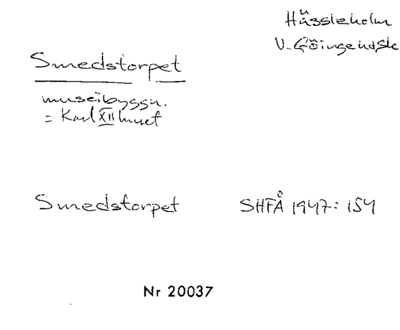 Hässleholm
V. Göinge hdsk
Smedstorpet
museibyggn.
= Karl XII huset
Smedstorpet SHFÅ 1947: 154
Nr 20037